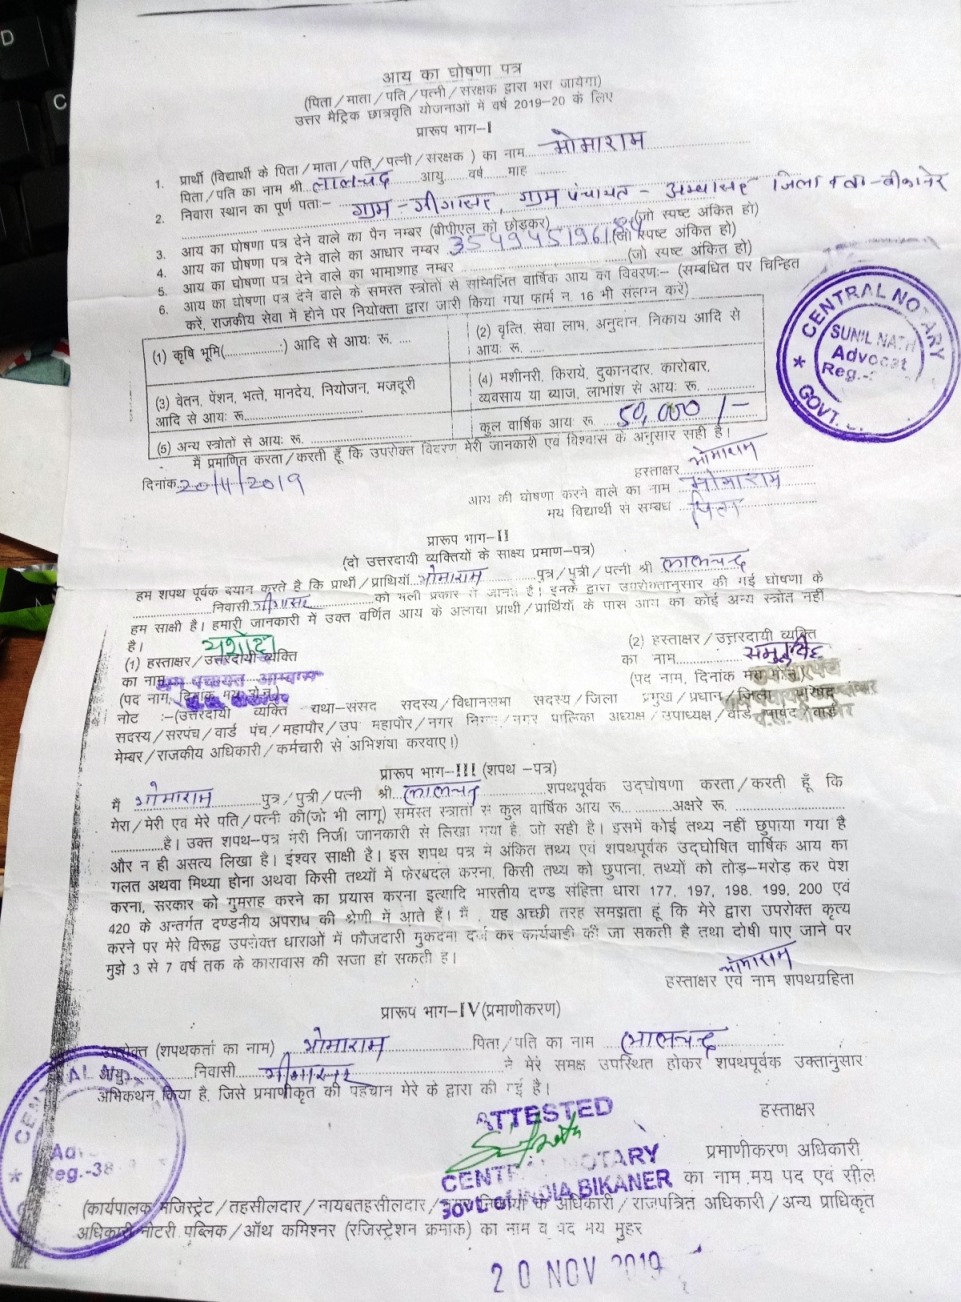 आय का घोषणा पत्र
(पिता/माता/पति/पत्नी/संरक्षक द्वारा भरा जायेगा)
उत्तर मैट्रिक छात्रवृति योजनाओं में वर्ष 2019-20 के लिए
प्रारूप भाग-I
1. प्रार्थी (विद्यार्थी के पिता/माता/पति/पत्नी/संरक्षक) का नाम... भोमाराम
पिता/पति का नाम श्री. लालचंद आयु वर्ष माह
2. निवास स्थान का पूर्ण पताः- ग्राम - जीगासर, ग्राम पंचायत - जिला बीकानेर
3. आय का घोषणा पत्र देने वाले का पैन नम्बर (बीपीएल को छोड़कर) (जो स्पष्ट अंकित हो)
4. आय का घोषणा पत्र देने वाले का आधार नम्बर (जो स्पष्ट अंकित हो)
5. आय का घोषणा पत्र देने वाले का भामाशाह नम्बर (जो स्पष्ट अंकित हो)
6. आय का घोषणा पत्र देने वाले के समस्त स्त्रोतों से सम्मिलित वार्षिक आय का विवरणः- (सम्बधित पर चिन्हित
करे, राजकीय सेवा में होने पर नियोक्ता द्वारा जारी किया गया फार्म न. 16 भी संलग्न करे)
(1) कृषि भूमि(...............) आदि से आयः रू. ....
(2) वृत्ति, सेवा लाभ, अनुदान, निकाय आदि से
आयः रू. .....
(3) वेतन, पेंशन, भत्ते, मानदेय, नियोजन, मजदूरी
आदि से आयः रू...........................
(4) मशीनरी, किराये, दुकानदार, कारोबार,
व्यवसाय या ब्याज, लाभांश से आयः रू. ..............
(5) अन्य स्त्रोतों से आयः रू. .....................
कुल वार्षिक आय रू 50,000/-
CENTRAL NOTARY
SUNIL NATH
Advocat
Reg.-
GOVT.
मैं प्रमाणित करता/करती हूँ कि उपरोक्त विवरण मेरी जानकारी एवं विश्वास के अनुसार सही है।
दिनांक 20/11/2019
हस्ताक्षर भोमाराम
आय की घोषणा करने वाले का नाम भोमाराम
मय विद्यार्थी से सम्बध पिता
प्रारूप भाग-II
(दो उत्तरदायी व्यक्तियों के साक्ष्य प्रमाण-पत्र)
हम शपथ पूर्वक बयान करते है कि प्रार्थी/प्रार्थियाँ भोमाराम पुत्र/पुत्री/पत्नी श्री लालचन्द
निवासी जीगासर को भली प्रकार से जानते है। इनके द्वारा उपरोक्तानुसार की गई घोषणा के
हम साक्षी है। हमारी जानकारी में उक्त वर्णित आय के अलावा प्रार्थी/प्रार्थियों के पास आय का कोई अन्य स्त्रोत नहीं
है।
यशोदा
(1) हस्ताक्षर/उत्तरदायी व्यक्ति
का नाम
(पद नाम, दिनांक मय सील)
(2) हस्ताक्षर/उत्तरदायी व्यक्ति
का नाम...........
(पद नाम, दिनांक मय सील)
नोट :-(उत्तरदायी व्यक्ति यथा-संसद सदस्य/विधानसभा सदस्य/जिला प्रमुख/प्रधान/जिला परिषद
सदस्य/सरपंच/वार्ड पंच/महापौर/उप महापौर/नगर निगम/नगर पालिका अध्यक्ष/उपाध्यक्ष/वार्ड पार्षद वार्ड
मेम्बर/राजकीय अधिकारी/कर्मचारी से अभिशंषा करवाए।)
प्रारूप भाग-III (शपथ -पत्र)
मैं भोमाराम पुत्र/पुत्री/पत्नी श्री. लालचन्द शपथपूर्वक उद्घोषणा करता/करती हूँ कि
मेरा/मेरी एवं मेरे पति/पत्नी की(जो भी लागू) समस्त स्त्रोतों से कुल वार्षिक आय रू..........अक्षरे रू.
............है। उक्त शपथ-पत्र मेरी निजी जानकारी से लिखा गया है, जो सही है। इसमें कोई तथ्य नहीं छुपाया गया है
और न ही असत्य लिखा है। ईश्वर साक्षी है। इस शपथ पत्र में अंकित तथ्य एवं शपथपूर्वक उद्घोषित वार्षिक आय का
गलत अथवा मिथ्या होना अथवा किसी तथ्यों में फेरबदल करना, किसी तथ्य को छुपाना, तथ्यों को तोड़-मरोड़ कर पेश
करना, सरकार को गुमराह करने का प्रयास करना इत्यादि भारतीय दण्ड संहिता धारा 177, 197, 198, 199, 200 एवं
420 के अन्तर्गत दण्डनीय अपराध की श्रेणी में आते हैं। मैं , यह अच्छी तरह समझता हूं कि मेरे द्वारा उपरोक्त कृत्य
करने पर मेरे विरूद्ध उपरोक्त धाराओं में फौजदारी मुकदमा दर्ज कर कार्यवाही की जा सकती है तथा दोषी पाए जाने पर
मुझे 3 से 7 वर्ष तक के कारावास की सजा हो सकती है।
भोमाराम
हस्ताक्षर एवं नाम शपथग्रहिता
प्रारूप भाग-IV(प्रमाणीकरण)
उपरोक्त (शपथकर्ता का नाम) भोमाराम पिता/पति का नाम लालचन्द
आयु निवासी जीगासर ने मेरे समक्ष उपस्थित होकर शपथपूर्वक उक्तानुसार
अभिकथन किया है, जिसे प्रमाणीकृत की पहचान मेरे के द्वारा की गई है।
ATTESTED
हस्ताक्षर
CENTRAL NOTARY
GOVT. OF INDIA BIKANER
प्रमाणीकरण अधिकारी
का नाम मय पद एवं सील
(कार्यपालक मजिस्ट्रेट/तहसीलदार/नायबतहसीलदार/ के अधिकारी/राजपत्रित अधिकारी/अन्य प्राधिकृत
अधिकारी/नोटरी पब्लिक/ऑथ कमिश्नर (रजिस्ट्रेशन क्रमांक) का नाम व पद मय मुहर
20 NOV 2019
Reg.-38